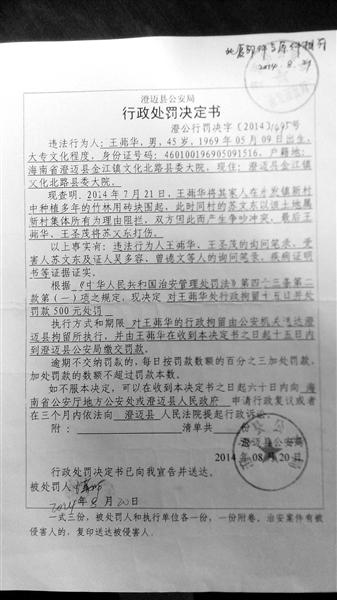 2014.8.29
澄迈县公安局
行政处罚决定书
澄公行罚决字[2014]1695号
违法行为人:王茀华,男,45岁,1969年05月09日出生,
大专文化程度,身份证号码:460100196905091516,户籍地:
海南省澄迈县金江镇文化北路县委大院,现住:澄迈县金江镇
文化北路县委大院。
现查明,2014年7月21日,王茀华将其家人在乡发镇新村
中种植多年的竹林用砖块围起,此时同村的苏文东以该土地属
新村集体所有为理由阻拦,双方因此而产生争吵冲突,最后王
茀华、王圣茂将苏文东打伤。
以上事实有:违法行为人王茀华、王圣茂的询问笔录,受
害人苏文东及证人吴多容、曾德文等人的询问笔录,疾病证明
书等证据证实。
根据《中华人民共和国治安管理处罚法》第四十三条第二
款第(一)项之规定,现决定 对王茀华处行政拘留十五日并处
罚款500元处罚
执行方式和期限 对王茀华的行政拘留由公安机关送达澄
迈县拘留所执行,并由王茀华在收到本决定书之日起十五日内
到澄迈县公安局缴交罚款。
逾期不交纳罚款的,每日按罚款数额的百分之三加处罚款,
加处罚款的数额不超过罚款本数。
如不服本决定,可以在收到本决定书之日起六十日内向 海
南省公安厅地方公安处或澄迈县人民政府 申请行政复议或者
在三个月内依法向 澄迈县 人民法院提起行政诉讼。
附: 清单共
澄迈县公安局
2014年08月20日
行政处罚决定书已向我宣告并送达。
被处罚人
2014年8月20日
一式三份,被处罚人和执行单位各一份,一份附卷。治安案件有被
侵害人的,复印送达被侵害人。